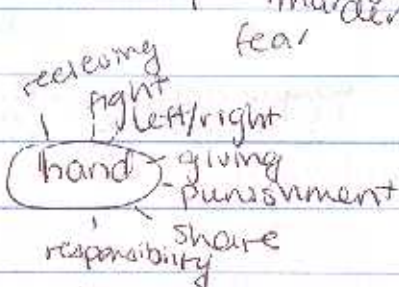 murder
fear
recieving
fight
left/right
hand
giving
punishment
share
responsibility